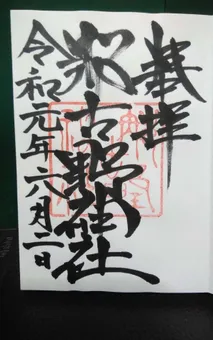 奉拝
那古野神社
令和元年六月二日